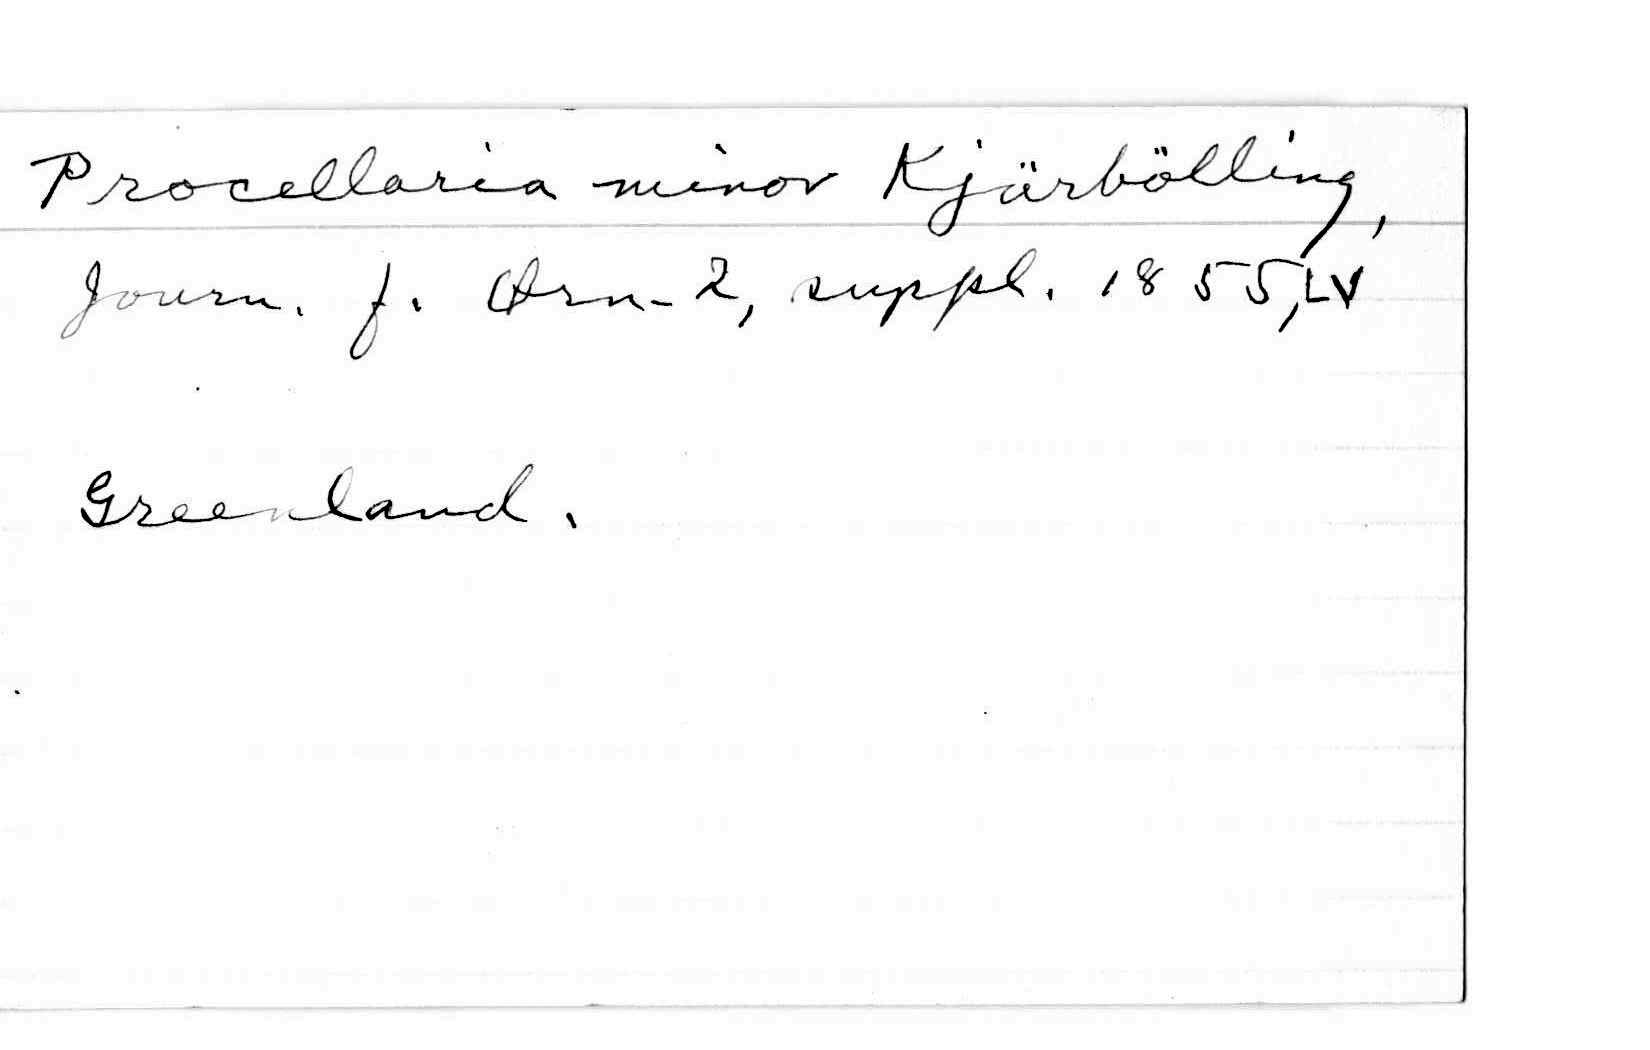 Procellaria minor Kjärbölling,
Journ. f. Orn. 2, suppl. 1855, LV
Greenland.